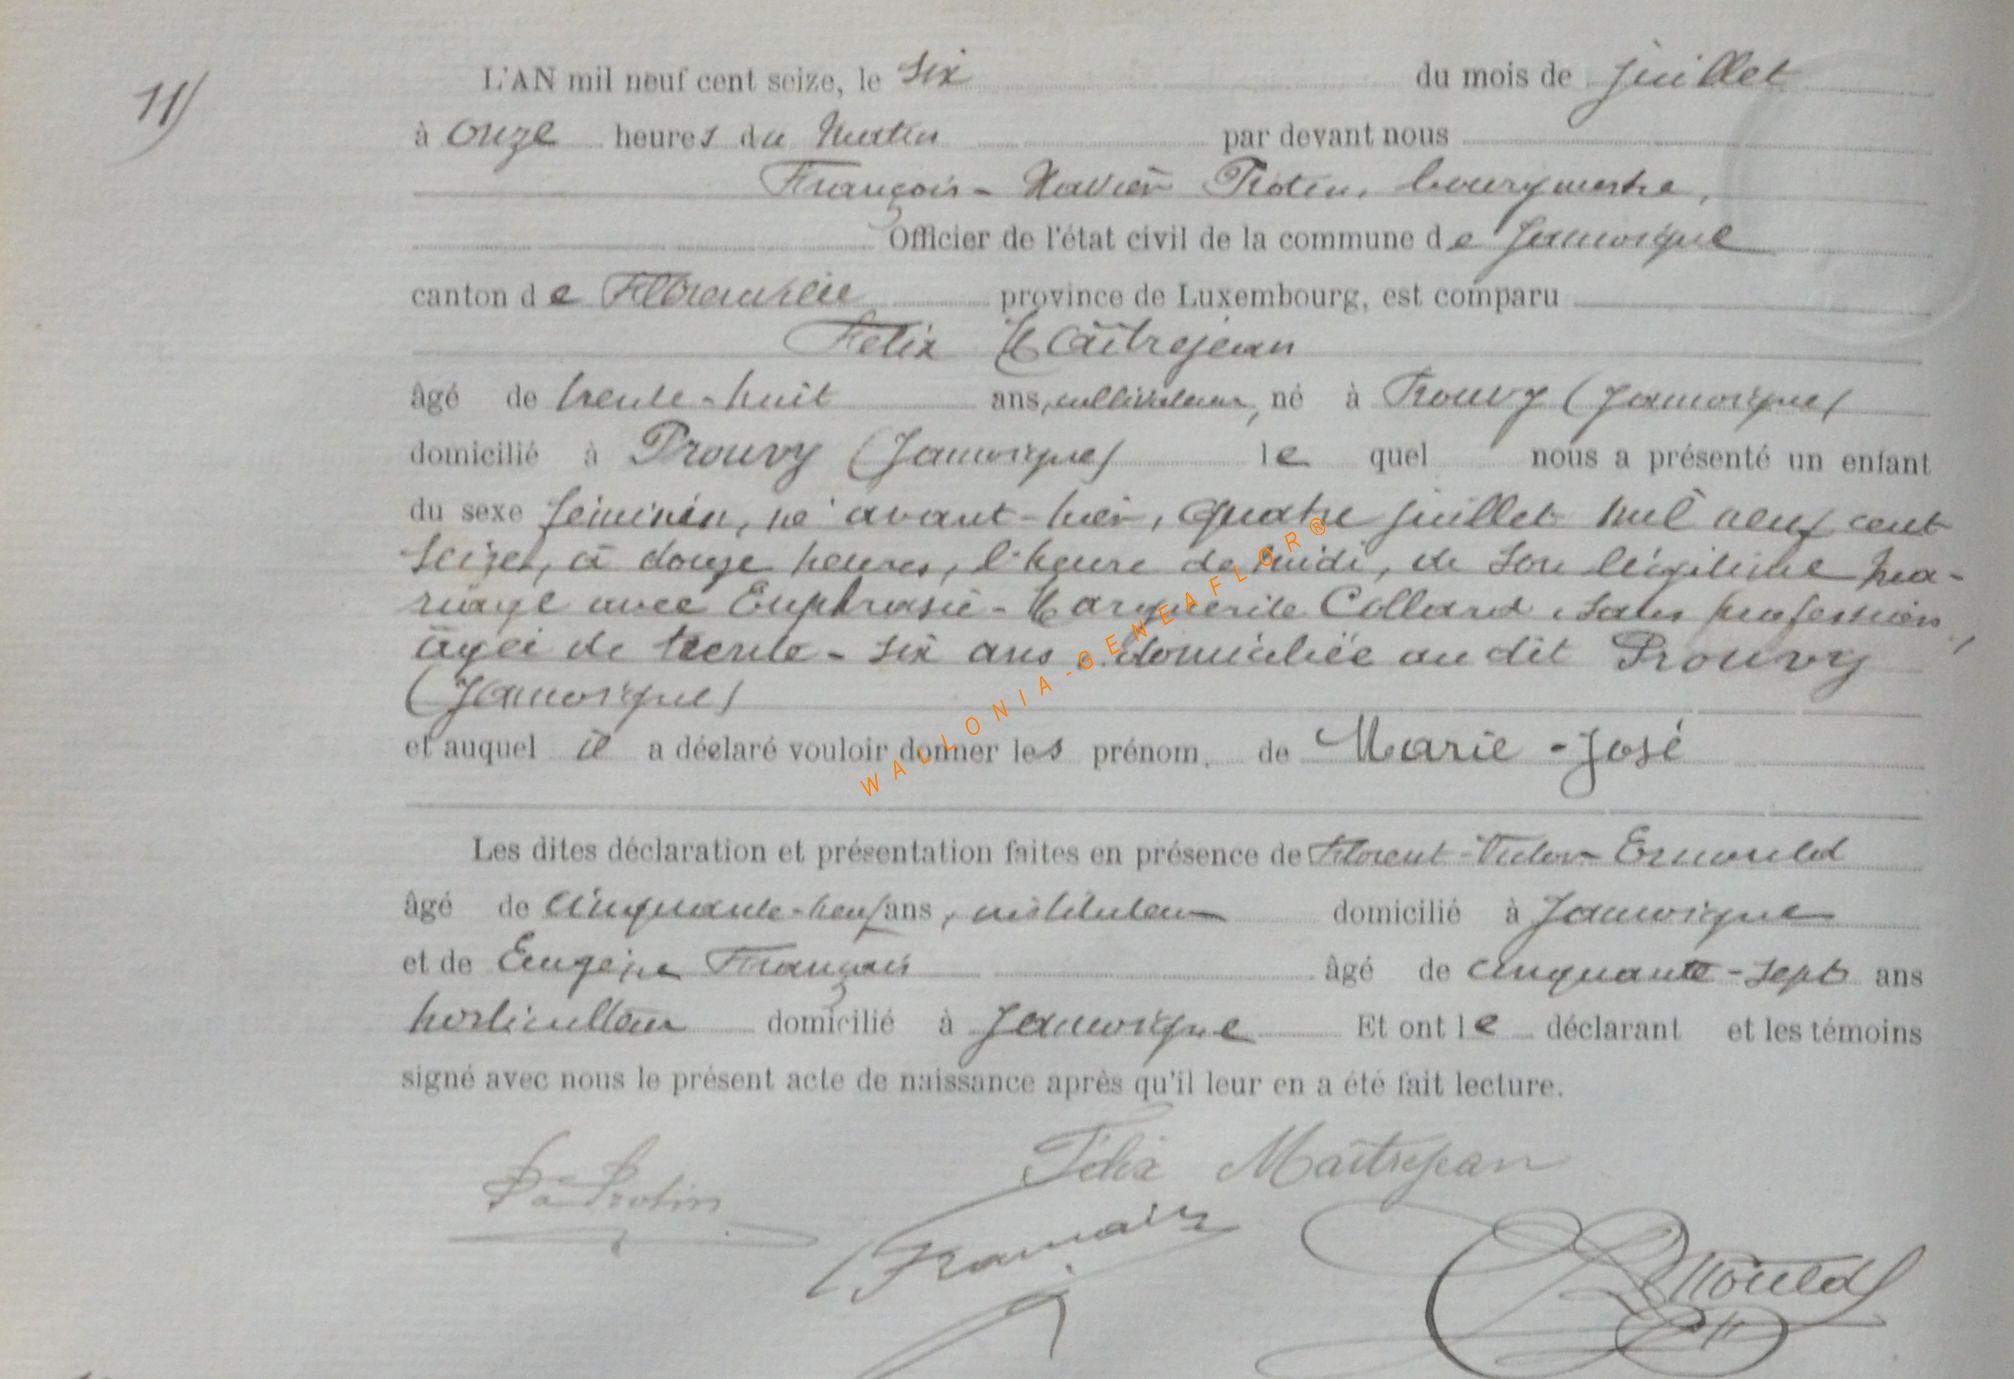 11)
L'AN mil neuf cent seize, le six du mois de juillet
à onze heures du matin par devant nous
François-Xavier Protin, bourgmestre,
Officier de l'état civil de la commune de Jamoigne
canton de Florenville province de Luxembourg, est comparu
Félix Maîtrejean
âgé de trente-huit ans, cultivateur, né à Prouvy (Jamoigne)
domicilié à Prouvy (Jamoigne) le quel nous a présenté un enfant
du sexe féminin, né avant-hier, quatre juillet mil neuf cent
seize, à douze heures, l'heure de midi, de son légitime ma-
riage avec Euphrasie-Marguerite Collard, sans profession,
âgée de trente-six ans, domiciliée au dit Prouvy
(Jamoigne)
et auquel il a déclaré vouloir donner les prénom. de Marie-José
Les dites déclaration et présentation faites en présence de Florent-Victor Ernould
âgé de cinquante-neuf ans, instituteur domicilié à Jamoigne
et de Eugène François âgé de cinquante-sept ans
horticulteur domicilié à Jamoigne Et ont le déclarant et les témoins
signé avec nous le présent acte de naissance après qu'il leur en a été fait lecture.
Protin
Félix Maîtrejean
François
Ernould
WALLONIA-GENEAFLOR®